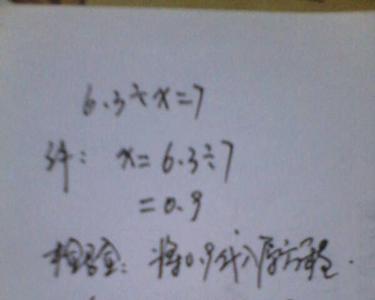 6.3÷x=7
解：x=6.3÷7
=0.9
检验：将0.9代入原方程.